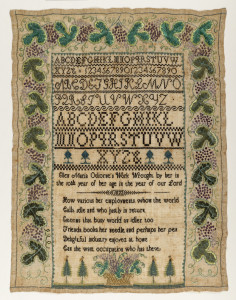 ABCDEFGHIKLMNOPQRSTUVW
XYZ& 1234567890 1234567890
ABCDEFGHIKLMNO
PQRSTUVWXYZ
ABCDEFGHIKL
MNOPQRSTUVW
XYZ&
Maria Work Wrought by her in
the 10th year of her age in the year of our Lord
How various her employments whom the world
Calls idle and who justly in return
Esteems that busy world an idler too
Friends books her needle and perhaps her pen
Delightful industry enjoyed at home
Can she want occupation who has these